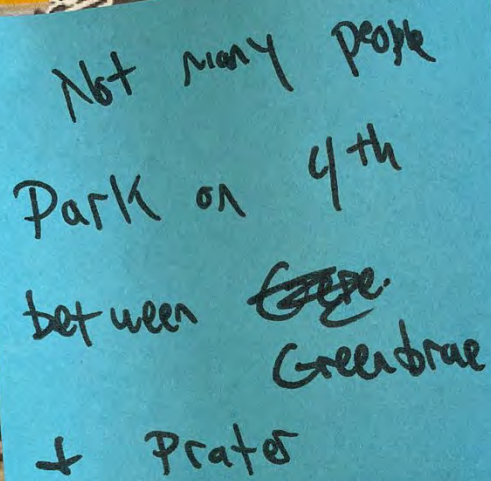 Not many people
Park on 4th
between
Greenbrae
+ Prater